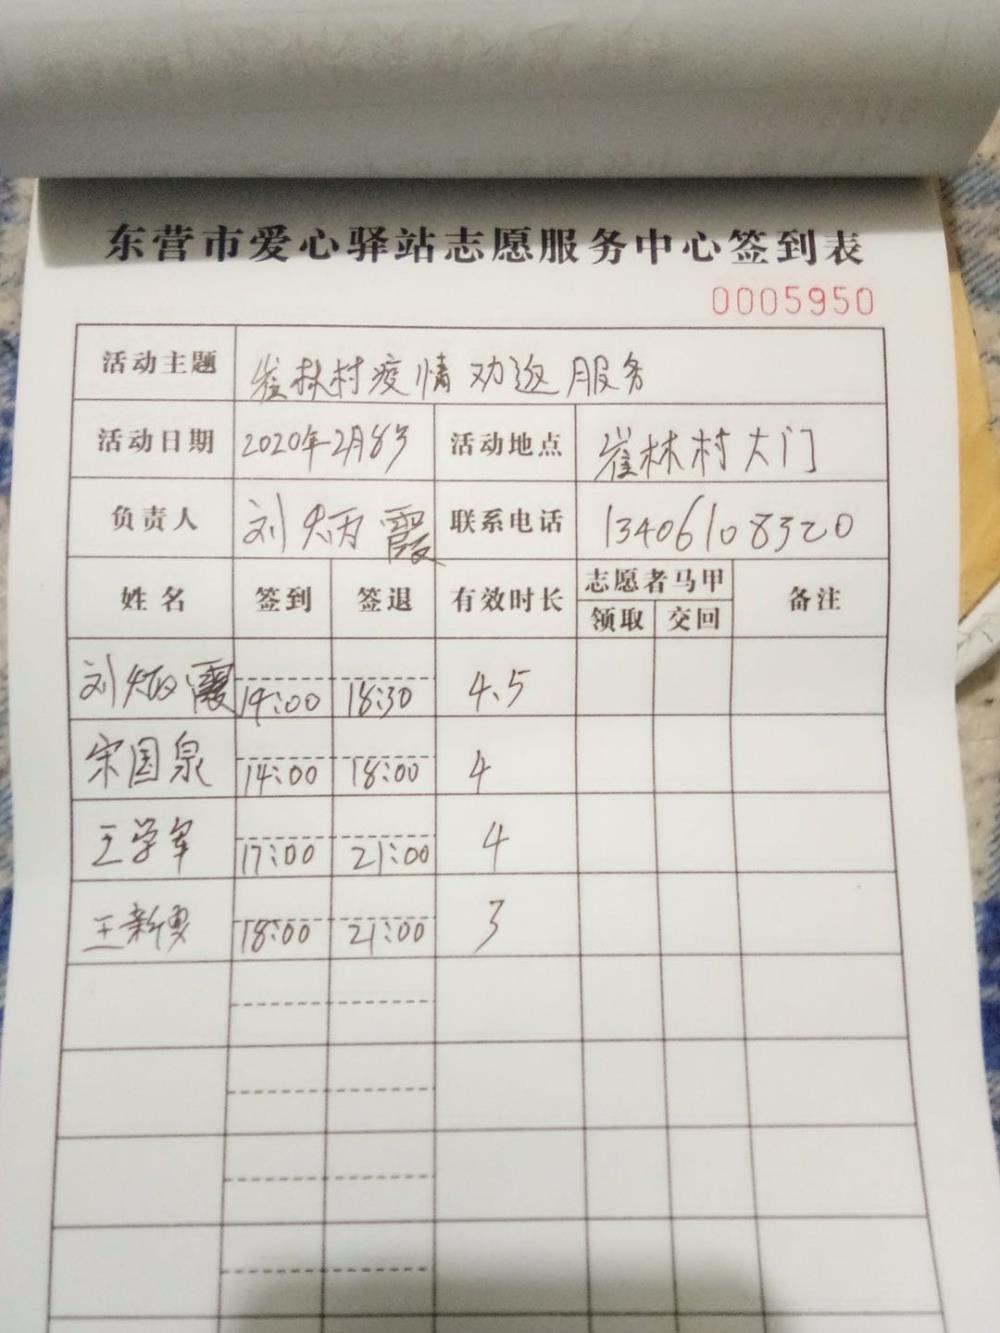 东营市爱心驿站志愿服务中心签到表
0005950
活动主题 崔林村疫情劝返服务
活动日期 2020年2月8号 活动地点 崔林村大门
负责人 刘炳霞 联系电话 13406108320
姓名 签到 签退 有效时长 志愿者马甲 备注
领取 交回
刘炳霞 14:00 18:30 4.5
宋国泉 14:00 18:00 4
王学军 17:00 21:00 4
王新 18:00 21:00 3